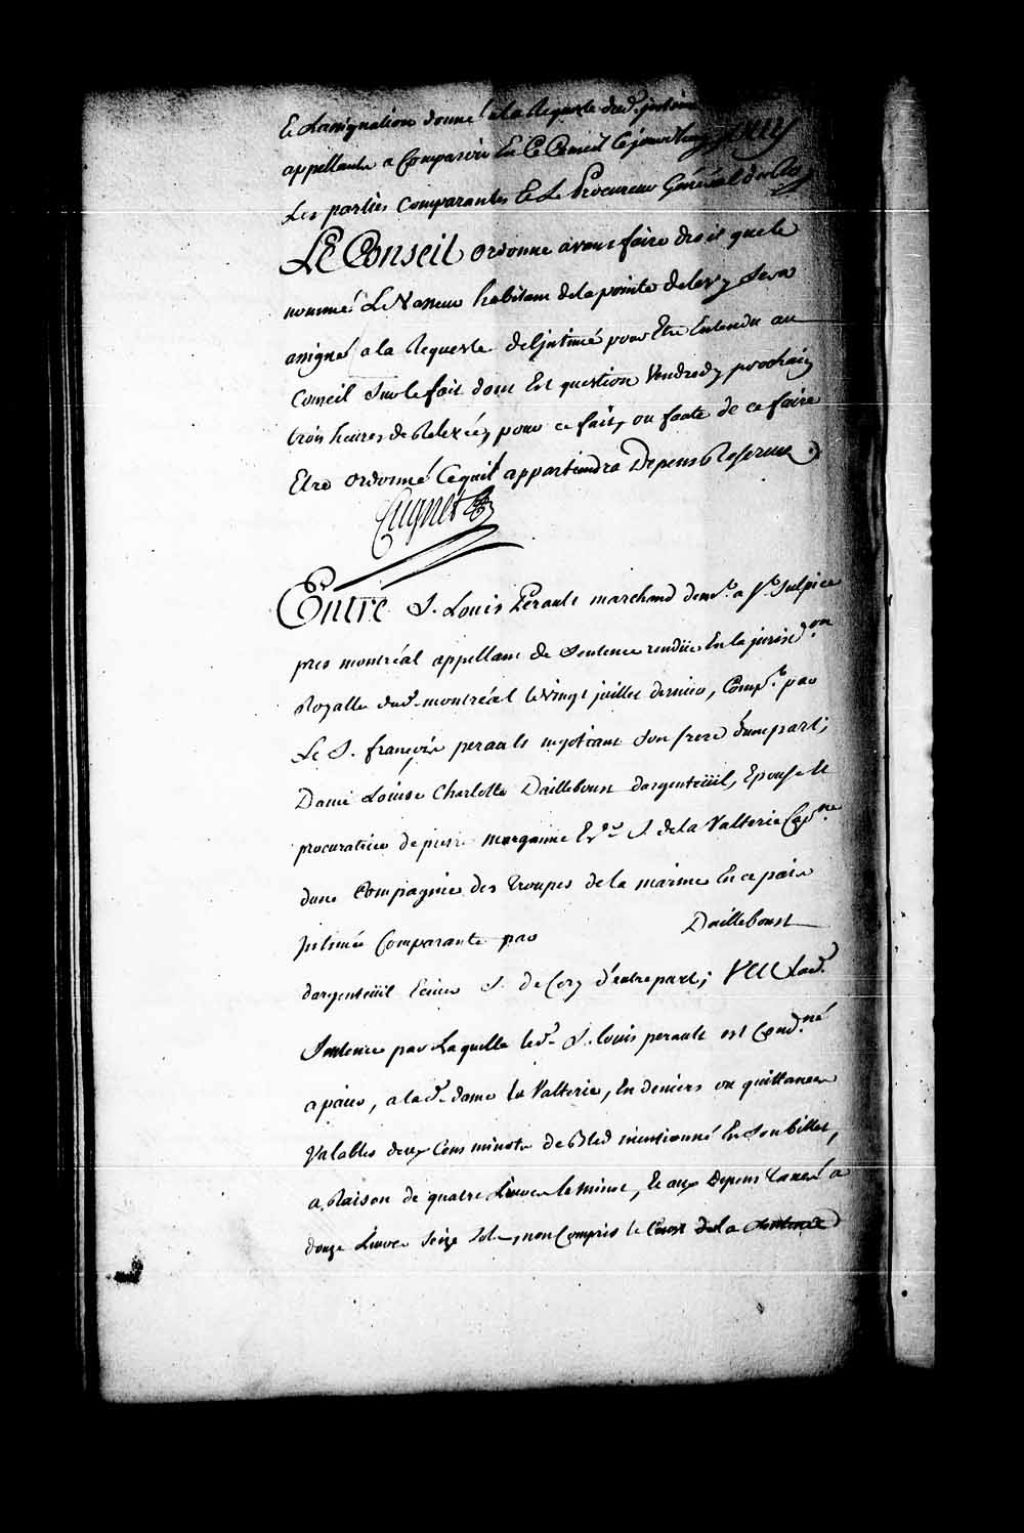 Et Lassignation donné a la Requeste dud.
appellante a Comparoir En Ce Conseil Ce jour
Les parties Comparantes Et Le Procureur Général du Roy
LE Conseil ordonne avant faire droit que le
nommé Le Vasseur habitant de la pointe de Levy Sera
assigné a la Requeste de l'jntimé pour Etre Entendu au
Conseil Sur le fait dont Est question Vendredy prochain
trois heures de Relevéz pour ce fait, ou faute de ce faire
Etre ordonné Cequil appartiendra Depens Reserves
Cugnet
Entre S. Louis Perault marchand dem.t a S.t Sulpice
pres montréal appellant de Sentence rendüe En la jurisd.on
Royalle dud. montréal le vingt juillet dernier, Comp.t par
Le S. françois perault negotiant Son frere d'une part;
Dame Louise Charlotte Dailleboust dargenteüil, Epouse Et
procuratrice de pierre morganne Ec.er S. de la Valterie Cap.ne
dune Compagnie des Troupes de la marine En ce païs
jntimée Comparante par Dailleboust
dargenteüil Ecuier S. de Cery d'autre part; VEU Lad.
Sentence par Laquelle led. S. louis perault est Cond.né
a païer, a lad. dame la Valterie, En deniers ou quittances
Valables deux Cens minots de Bled mentionné En Son billet,
a Raison de quatre Livres le minot, Et aux Depens Taxés a
douze Livres Seize Sols, non Compris le Coust de la Sentence